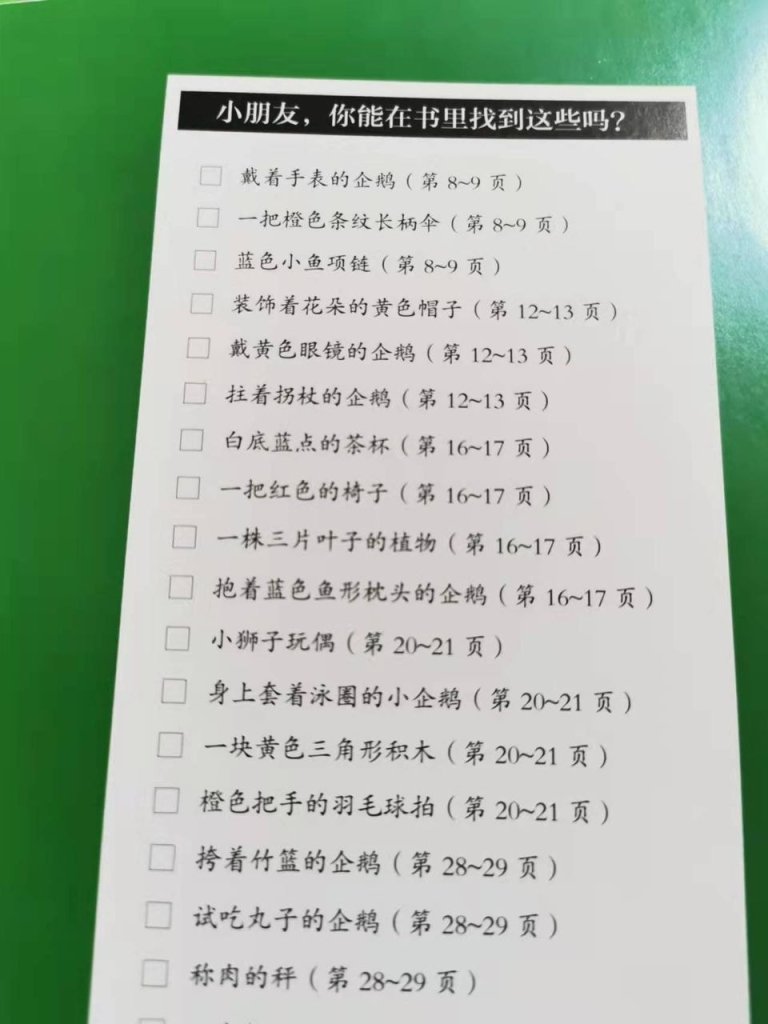 小朋友，你能在书里找到这些吗？
戴着手表的企鹅（第 8~9 页）
一把橙色条纹长柄伞（第 8~9 页）
蓝色小鱼项链（第 8~9 页）
装饰着花朵的黄色帽子（第 12~13 页）
戴黄色眼镜的企鹅（第 12~13 页）
拄着拐杖的企鹅（第 12~13 页）
白底蓝点的茶杯（第 16~17 页）
一把红色的椅子（第 16~17 页）
一株三片叶子的植物（第 16~17 页）
抱着蓝色鱼形枕头的企鹅（第 16~17 页）
小狮子玩偶（第 20~21 页）
身上套着泳圈的小企鹅（第 20~21 页）
一块黄色三角形积木（第 20~21 页）
橙色把手的羽毛球拍（第 20~21 页）
挎着竹篮的企鹅（第 28~29 页）
试吃丸子的企鹅（第 28~29 页）
称肉的秤（第 28~29 页）